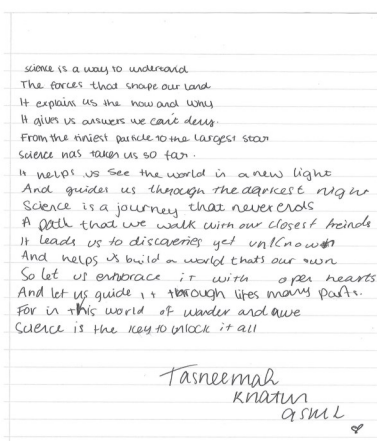 science is a way to understand
The forces that shape our land
It explains us the how and why
It gives us answers we can't deny.
From the tiniest particle to the largest star
Science has taken us so far.
It helps us see the world in a new light
And guides us through the darkest night
Science is a journey that never ends
A path that we walk with our closest freinds
It leads us to discoveries yet unknown
And helps us build a world thats our own
So let us embrace it with open hearts
And let us guide it through lifes many parts.
For in this world of wonder and awe
Science is the key to unlock it all
Tasneemah
Khatun